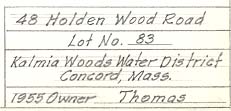 48 Holden Wood Road
Lot No. 83
Kalmia Woods Water District
Concord, Mass.
1955 Owner Thomas